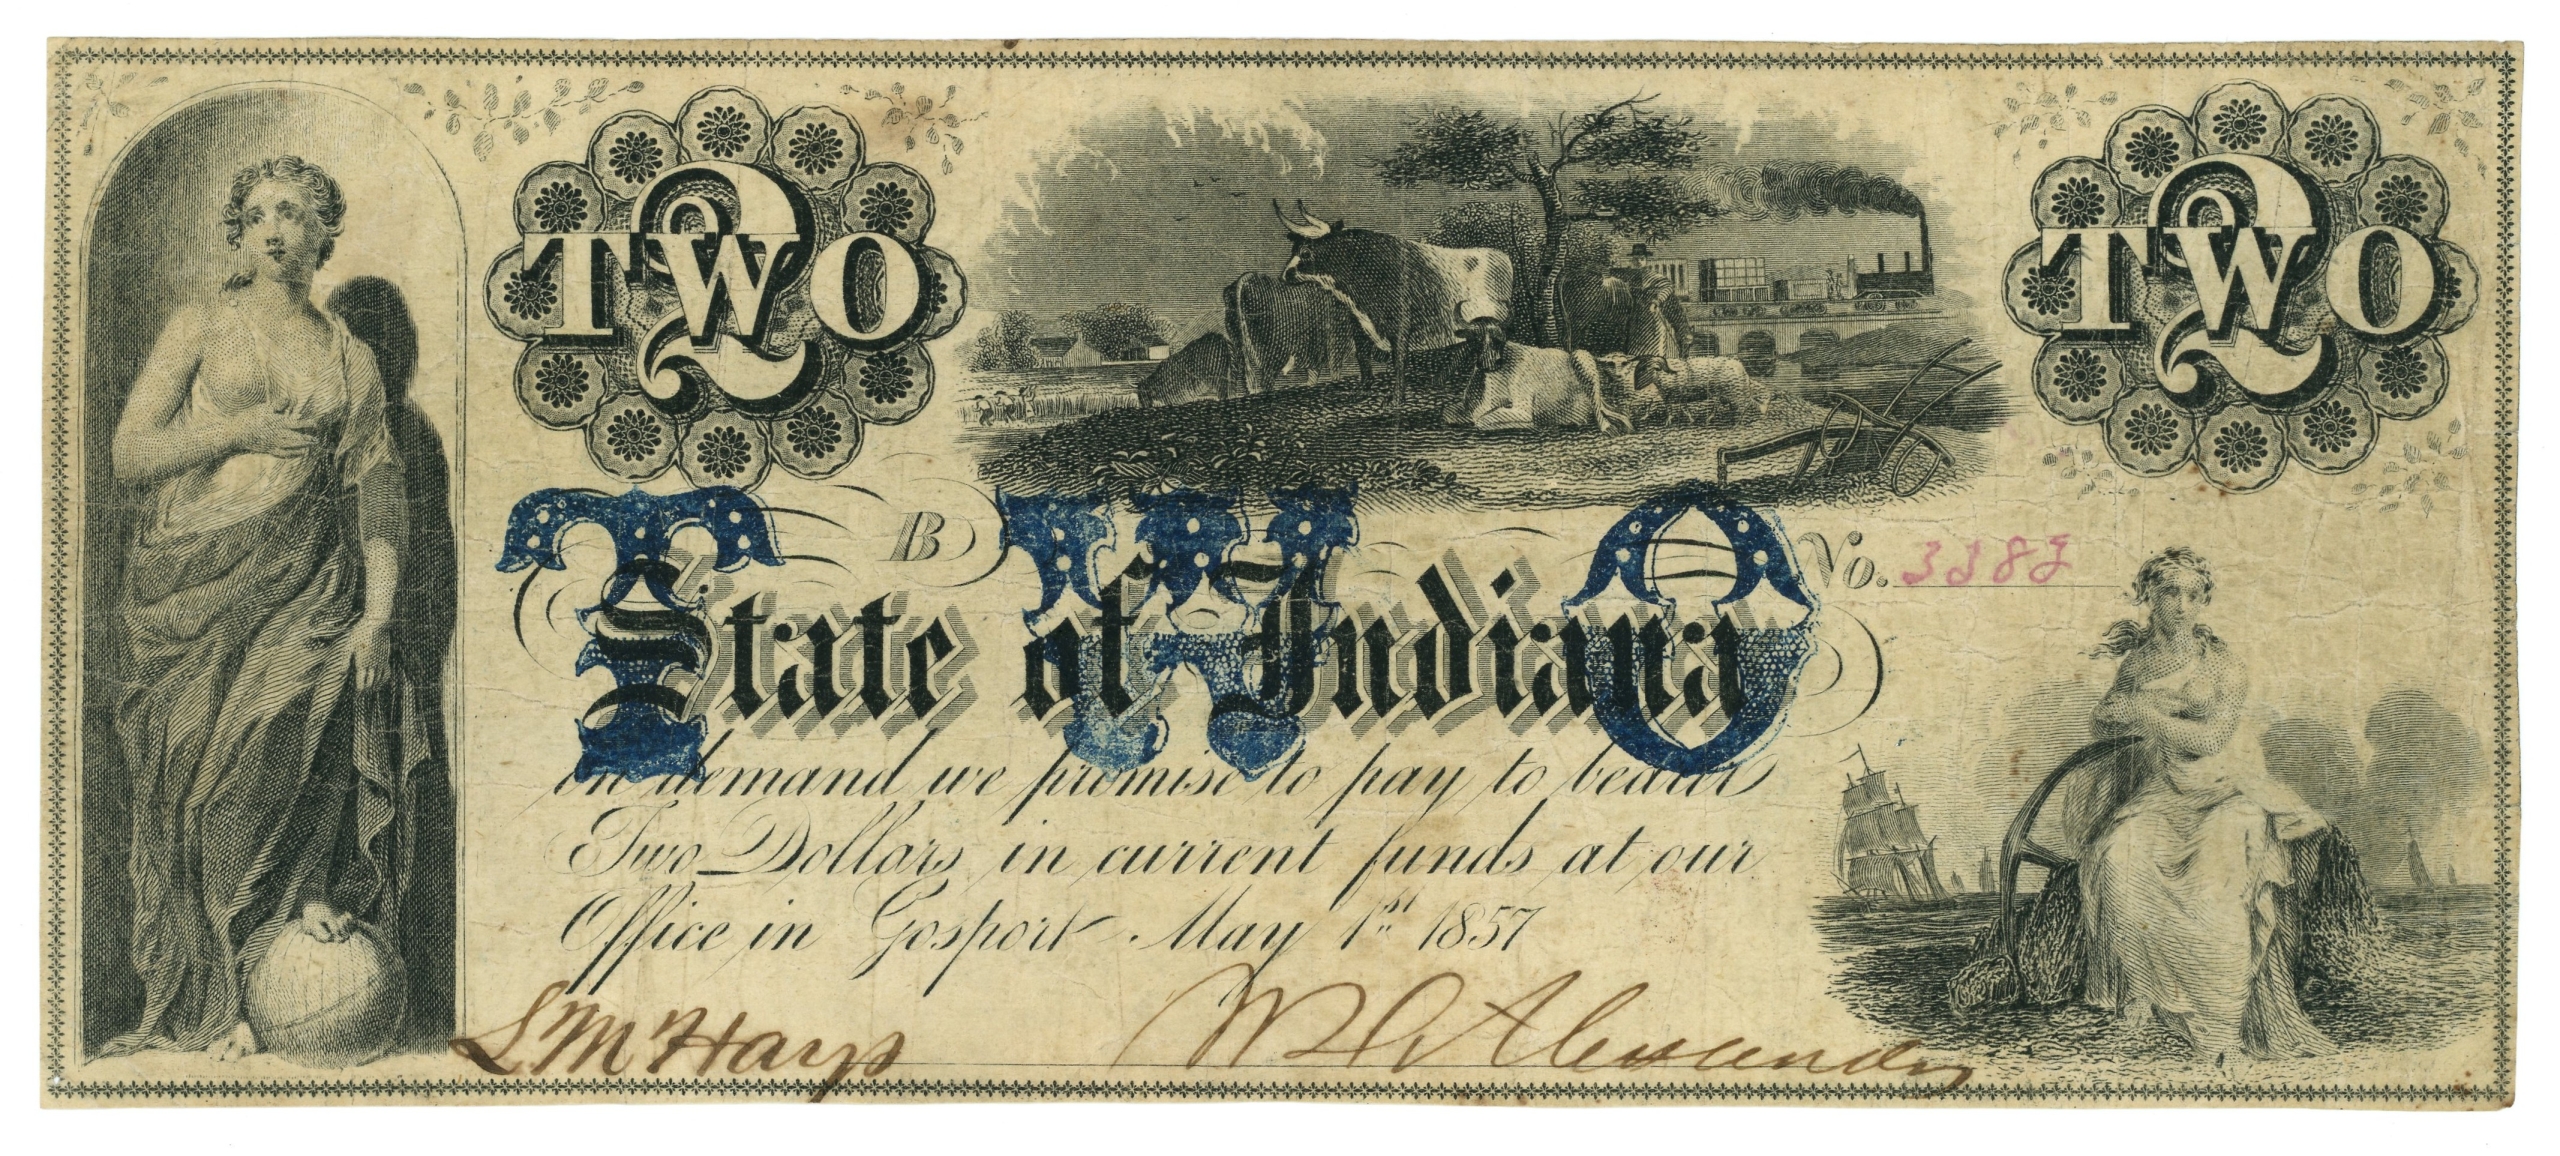 2 TWO
2 TWO
TWO
B
No. 3383
State of Indiana
on demand we promise to pay to bearer
Two Dollars in current funds at our
Office in Gosport May 1st 1857
L M Hays
Alexander